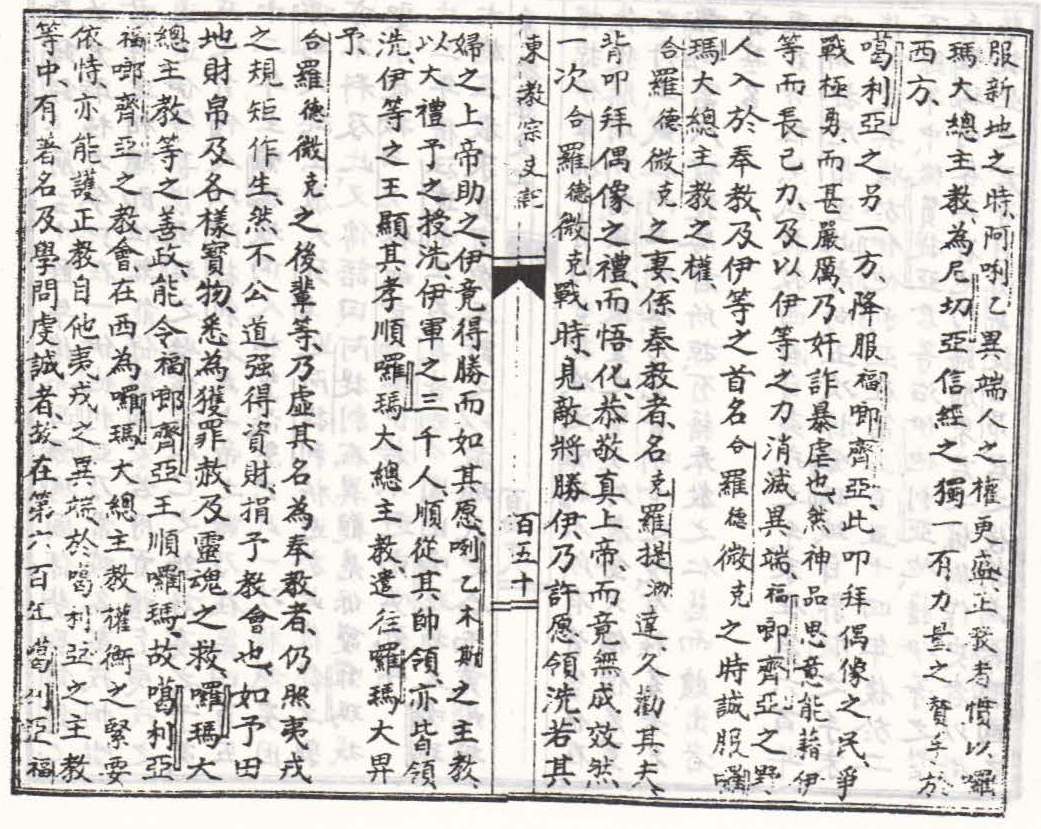 服新地之時、阿唎乙異端人之權更盛、正教者慣以囉
瑪大總主教、為尼切亞信經之獨一有力量之贊手於
西方、
葛利亞之另一方、降服福啣齊亞、此叩拜偶像之民、爭
戰極勇、而甚嚴厲、乃奸詐暴虐也、然神品思意能藉伊
等而長己力、及以伊等之力消滅異端、福啣齊亞之野
人入於奉教、及伊等之首名合羅德微克之時誠服囉
瑪大總主教之權
合羅德微克之妻、係奉教者、名克羅提泐達久勸其夫、
背叩拜偶像之禮、而悟化、恭敬真上帝、而竟無成效、然
一次合羅德微克戰時、見敵將勝伊、乃許愿領洗、若其
東教宗史記
百五十
婦之上帝助之、伊竟得勝而如其愿、唎乙木斯之主教、
以大禮予之授洗、伊軍之三千人、順從其帥領、亦皆領
洗、伊等之王顯其孝順囉瑪大總主教、遣往羅瑪大畀
予、
合羅德微克之後輩等、乃虛其名為奉教者、仍照夷戎
之規矩作生、然不公道强得資財、捐予教會也、如予田
地財帛及各樣寶物、悉為獲罪赦及靈魂之救、囉瑪大
總主教等之善政、能令福啣齊亞王順囉瑪、故葛利亞
福啣齊亞之教會、在西為囉瑪大總主教權衡之緊要
依恃、亦能護正教自他夷戎之異端、於葛利亞之主教
等中、有著名及學問虔誠者、故在第六百年葛利亞福